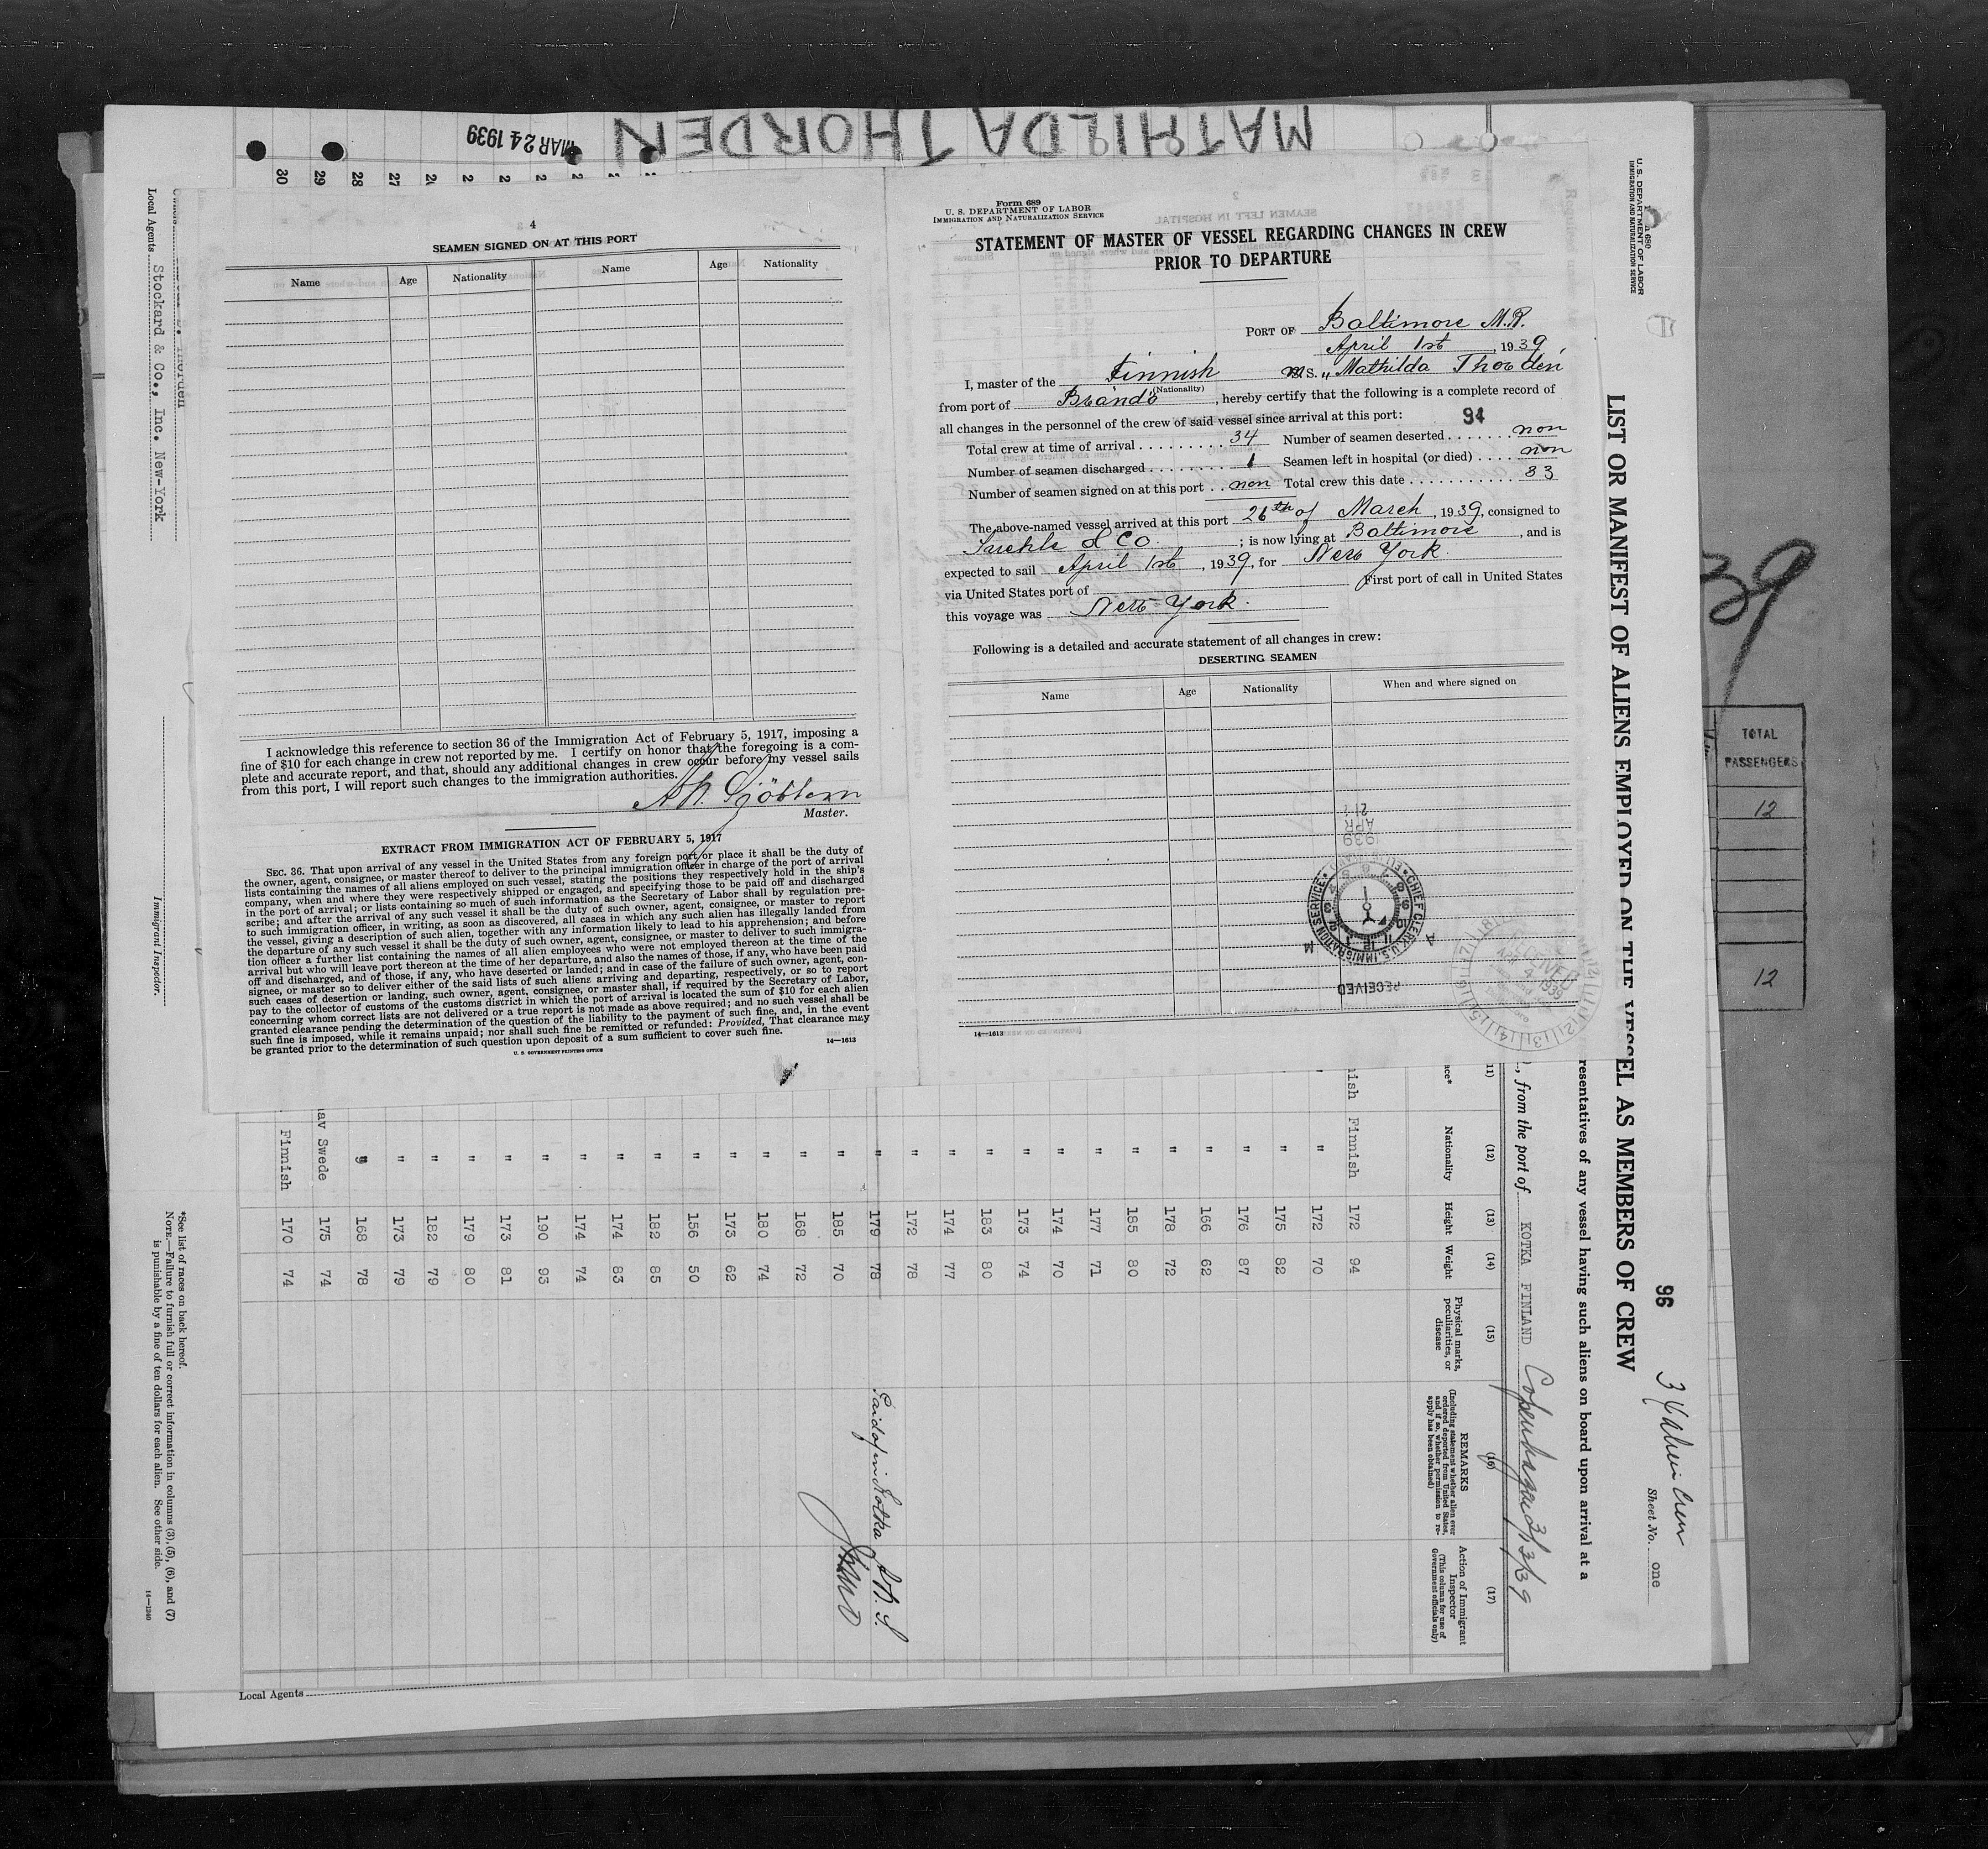 MATHILDA THORDEN
MAR 24 1939
30
29
28
27
4
SEAMEN SIGNED ON AT THIS PORT
Name Age Nationality Name Age Nationality
I acknowledge this reference to section 36 of the Immigration Act of February 5, 1917, imposing a
fine of $10 for each change in crew not reported by me. I certify on honor that the foregoing is a com-
plete and accurate report, and that, should any additional changes in crew occur before my vessel sails
from this port, I will report such changes to the immigration authorities.
Master.
EXTRACT FROM IMMIGRATION ACT OF FEBRUARY 5, 1917
SEC. 36. That upon arrival of any vessel in the United States from any foreign port or place it shall be the duty of
the owner, agent, consignee, or master thereof to deliver to the principal immigration officer in charge of the port of arrival
lists containing the names of all aliens employed on such vessel, stating the positions they respectively hold in the ship's
company, when and where they were respectively shipped or engaged, and specifying those to be paid off and discharged
in the port of arrival; or lists containing so much of such information as the Secretary of Labor shall by regulation pre-
scribe; and after the arrival of any such vessel it shall be the duty of such owner, agent, consignee, or master to report
to such immigration officer, in writing, as soon as discovered, all cases in which any such alien has illegally landed from
the vessel, giving a description of such alien, together with any information likely to lead to his apprehension; and before
the departure of any such vessel it shall be the duty of such owner, agent, consignee, or master to deliver to such immigra-
tion officer a further list containing the names of all alien employees who were not employed thereon at the time of the
arrival but who will leave port thereon at the time of her departure, and also the names of those, if any, who have been paid
off and discharged, and of those, if any, who have deserted or landed; and in case of the failure of such owner, agent, con-
signee, or master so to deliver either of the said lists of such aliens arriving and departing, respectively, or so to report
such cases of desertion or landing, such owner, agent, consignee, or master shall, if required by the Secretary of Labor,
pay to the collector of customs of the customs district in which the port of arrival is located the sum of $10 for each alien
concerning whom correct lists are not delivered or a true report is not made as above required; and no such vessel shall be
granted clearance pending the determination of the question of the liability to the payment of such fine, and, in the event
such fine is imposed, while it remains unpaid; nor shall such fine be remitted or refunded: Provided, That clearance may
be granted prior to the determination of such question upon deposit of a sum sufficient to cover such fine.
U. S. GOVERNMENT PRINTING OFFICE 14—1613
Form 689
U. S. DEPARTMENT OF LABOR
IMMIGRATION AND NATURALIZATION SERVICE
STATEMENT OF MASTER OF VESSEL REGARDING CHANGES IN CREW
PRIOR TO DEPARTURE
PORT OF Baltimore M.D.
April 1st, 1939,
I, master of the Finnish M.S. „Mathilda Thorden
(Nationality)
from port of Brändö, hereby certify that the following is a complete record of
all changes in the personnel of the crew of said vessel since arrival at this port: 94
Total crew at time of arrival 34 Number of seamen deserted non
Number of seamen discharged 1 Seamen left in hospital (or died) non
Number of seamen signed on at this port non Total crew this date 33
The above-named vessel arrived at this port 26th of March, 1939, consigned to
& Co. ; is now lying at Baltimore, and is
expected to sail April 1st, 1939, for New York.
via United States port of First port of call in United States
this voyage was New York.
Following is a detailed and accurate statement of all changes in crew:
DESERTING SEAMEN
Name Age Nationality When and where signed on
1939
APR
RECEIVED
CHIEF CLERK U.S. IMMIGRATION SERVICE
A M
RECEIVED
APR 4 1939
14—1613
Local Agents Stockard & Co., Inc. New-York
Immigrant Inspector.
*See list of races on back hereof.
NOTE.—Failure to furnish full or correct information in columns (3), (5), (6), and (7)
is punishable by a fine of ten dollars for each alien. See other side.
14—1240
U. S. DEPARTMENT OF LABOR
IMMIGRATION AND NATURALIZATION SERVICE
LIST OR MANIFEST OF ALIENS EMPLOYED ON THE VESSEL AS MEMBERS OF CREW
96
34 Alien Crew
Sheet No. one
resentatives of any vessel having such aliens on board upon arrival at a
, from the port of KOTKA FINLAND Copenhagen 3/3/39
(11) (12) (13) (14) (15) (16) (17)
Nationality Height Weight Physical marks, peculiarities, or disease
REMARKS
(Including statement whether alien ever ordered deported from United States, and if so, whether permission to re-apply has been obtained)
Action of Immigrant Inspector
(This column for use of Government officials only)
nish Finnish 172 94
" " 172 70
" 175 82
" 176 87
" 166 62
" 178 72
" 185 80
" 177 71
" 174 70
" 173 74
" 183 80
" 174 77
" 172 78
" 179 78 Paid of in Kotka
" 185 70
" 168 72
" 180 74
" 173 62
" 156 50
" 182 85
" 174 83
" 174 74
" 190 93
" 173 81
" 179 80
" 182 79
" 173 79
" 168 78
av Swede 175 74
Finnish 170 74
Local Agents
39
TOTAL
PASSENGERS
12
12